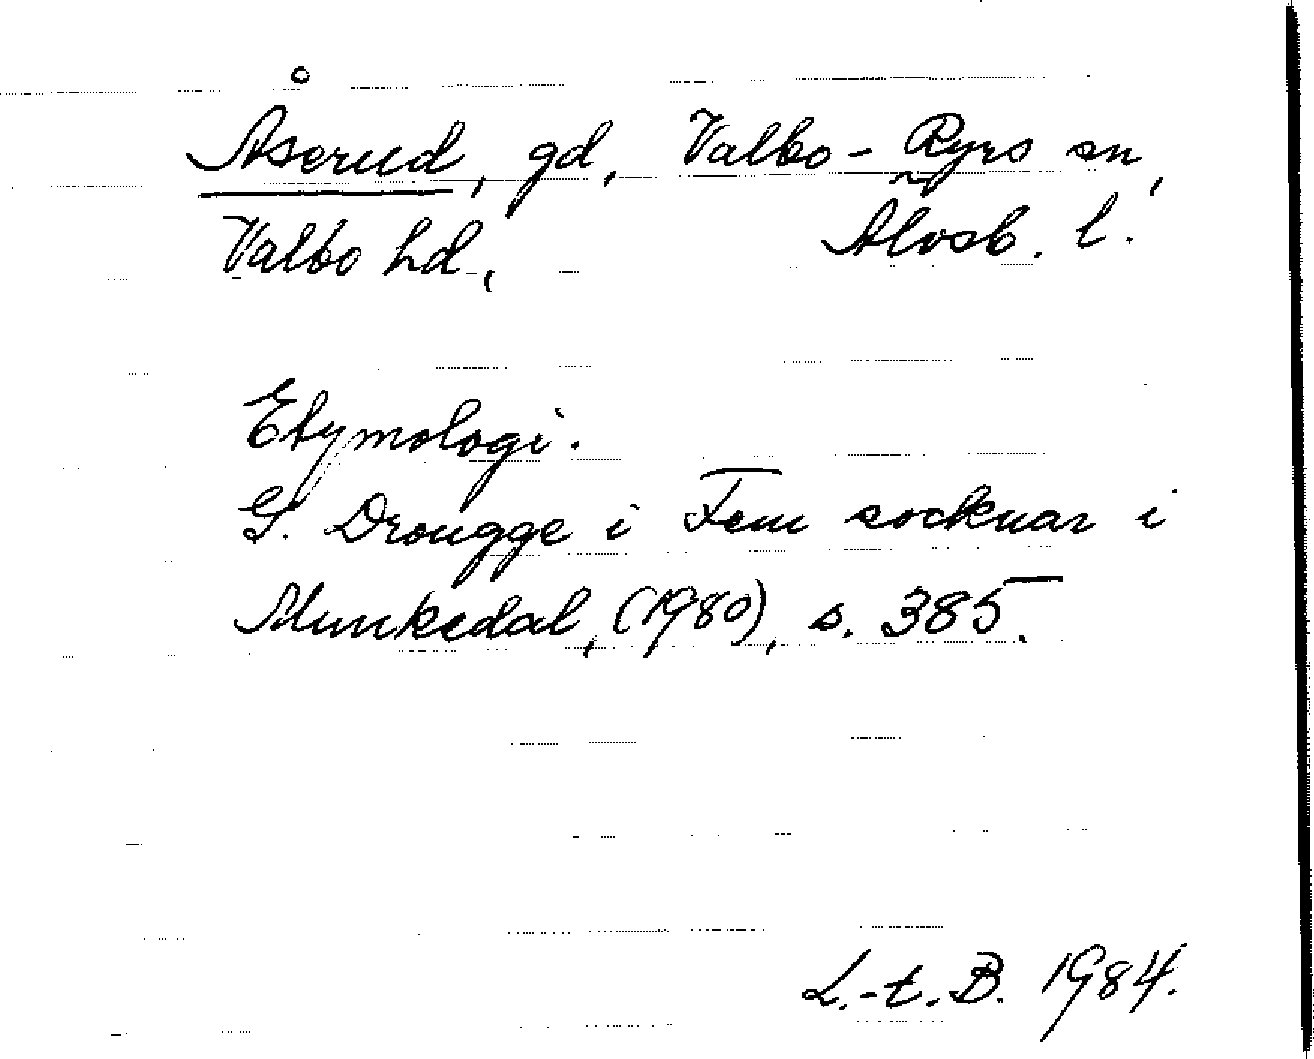 Åserud, gd, Valbo-Ryrs sn,
Valbo hd, Älvsb. l.
Etymologi.
G. Drougge i Fem socknar i
Munkedal, (1980), s. 385.
L.-t. B. 1984.